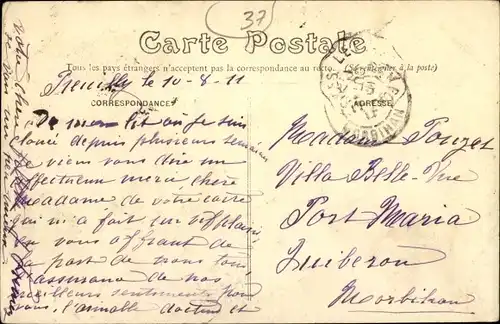 37
Carte Postale
Tous les pays étrangers n'acceptent pas la correspondance au recto. (à la poste)
Preuilly le 10-8-11
CORRESPONDANCE
ADRESSE
De mon lit où je suis
clouée depuis plusieurs semaines
je viens vous dire un
affectueux merci chère
Madame de votre carte
qui m'a fait un vif plaisir
en vous offrant de
la part de nous tous
l'assurance de nos
meilleurs sentiments pour
vous, l'aimable docteur et
votre
Madame
Villa Belle-Vue
Port Maria
Quiberon
Morbihan